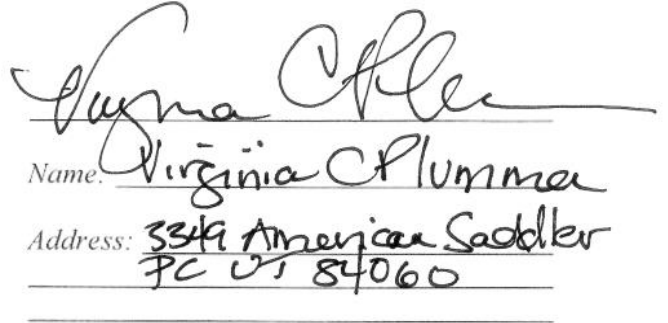 Virginia C Plummer
Name: Virginia C Plummer
Address: 3349 American Saddler
PC UT 84060